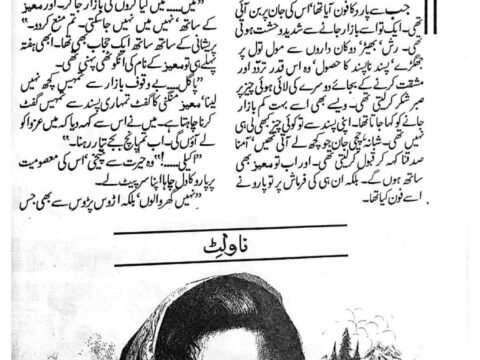 جب سے پارو کا فون آیا تھا، اس کی جان پر بن آئی
تھی۔ ایک تو اسے بازار جانے سے شدید وحشت ہوتی
تھی۔ رش، بھیڑ، دوکان داروں سے مول تول پر
جھگڑے، پسند ناپسند کا حصول، وہ اس قدر تردد اور
مشقت کرنے کے بجائے دوسرے کی لائی ہوئی چیز پر
صبر شکر کرلیتی تھی۔ ویسے بھی اسے بہت کم بازار
جانے کو کہا جاتا۔ اپنی پسند سے تو کوئی چیز بھی لی ہی
نہیں تھی۔ شانہ چچی جان جو کچھ لے آتی تھیں، آمنا
صدقنا کہہ کر قبول کرلیتی تھی۔ اور اب تو معیز بھی
ساتھ ہوں گے۔ بلکہ ان ہی کی فرمائش پر تو پارو نے
اسے فون کیا تھا۔
”میں..... میں کیا کروں گی بازار جا کر۔ اور معیز
کے ساتھ، نہیں میں نہیں جاسکتی۔ تم منع کردو۔“
پریشانی کے ساتھ ساتھ ایک حجاب بھی تھا۔ ابھی ہفتہ
پہلے ہی تو معیز کے نام کی انگوٹھی پہنی تھی۔
”پاگل..... بے وقوف بازار سے تمہیں کچھ نہیں
لینا، معیز منگنی کا گفٹ تمہاری پسند سے تمہیں گفٹ
کرنا چاہتا ہے۔ میں نے اس سے کہہ دیا کہ میں عزہ کو
لے آؤں گی۔ اب تم پانچ بجے تیار رہنا۔“
”اکیلی.....!“ وہ حیرت سے چیخی، اس کی معصومیت
پر پارو کا دل چاہا اپنا سر پیٹ لے۔
”نہیں گھر والوں، بلکہ اڑوس پڑوس سے بھی جس
ناولٹ